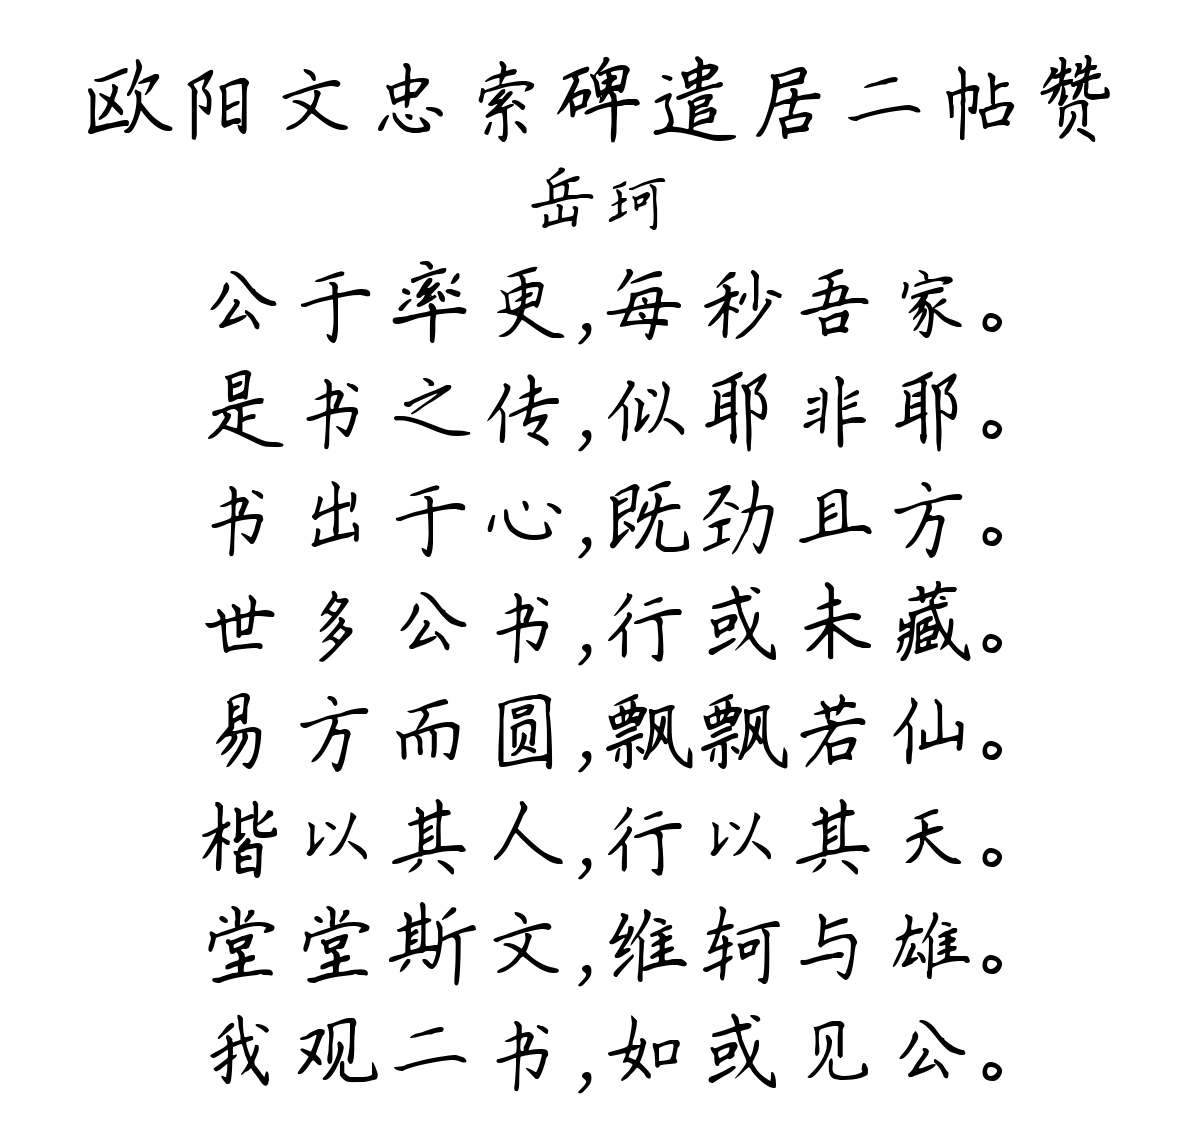 欧阳文忠索碑遣居二帖赞
岳珂
公于率更,每秒吾家。
是书之传,似耶非耶。
书出于心,既劲且方。
世多公书,行或未藏。
易方而圆,飘飘若仙。
楷以其人,行以其天。
堂堂斯文,维轲与雄。
我观二书,如或见公。